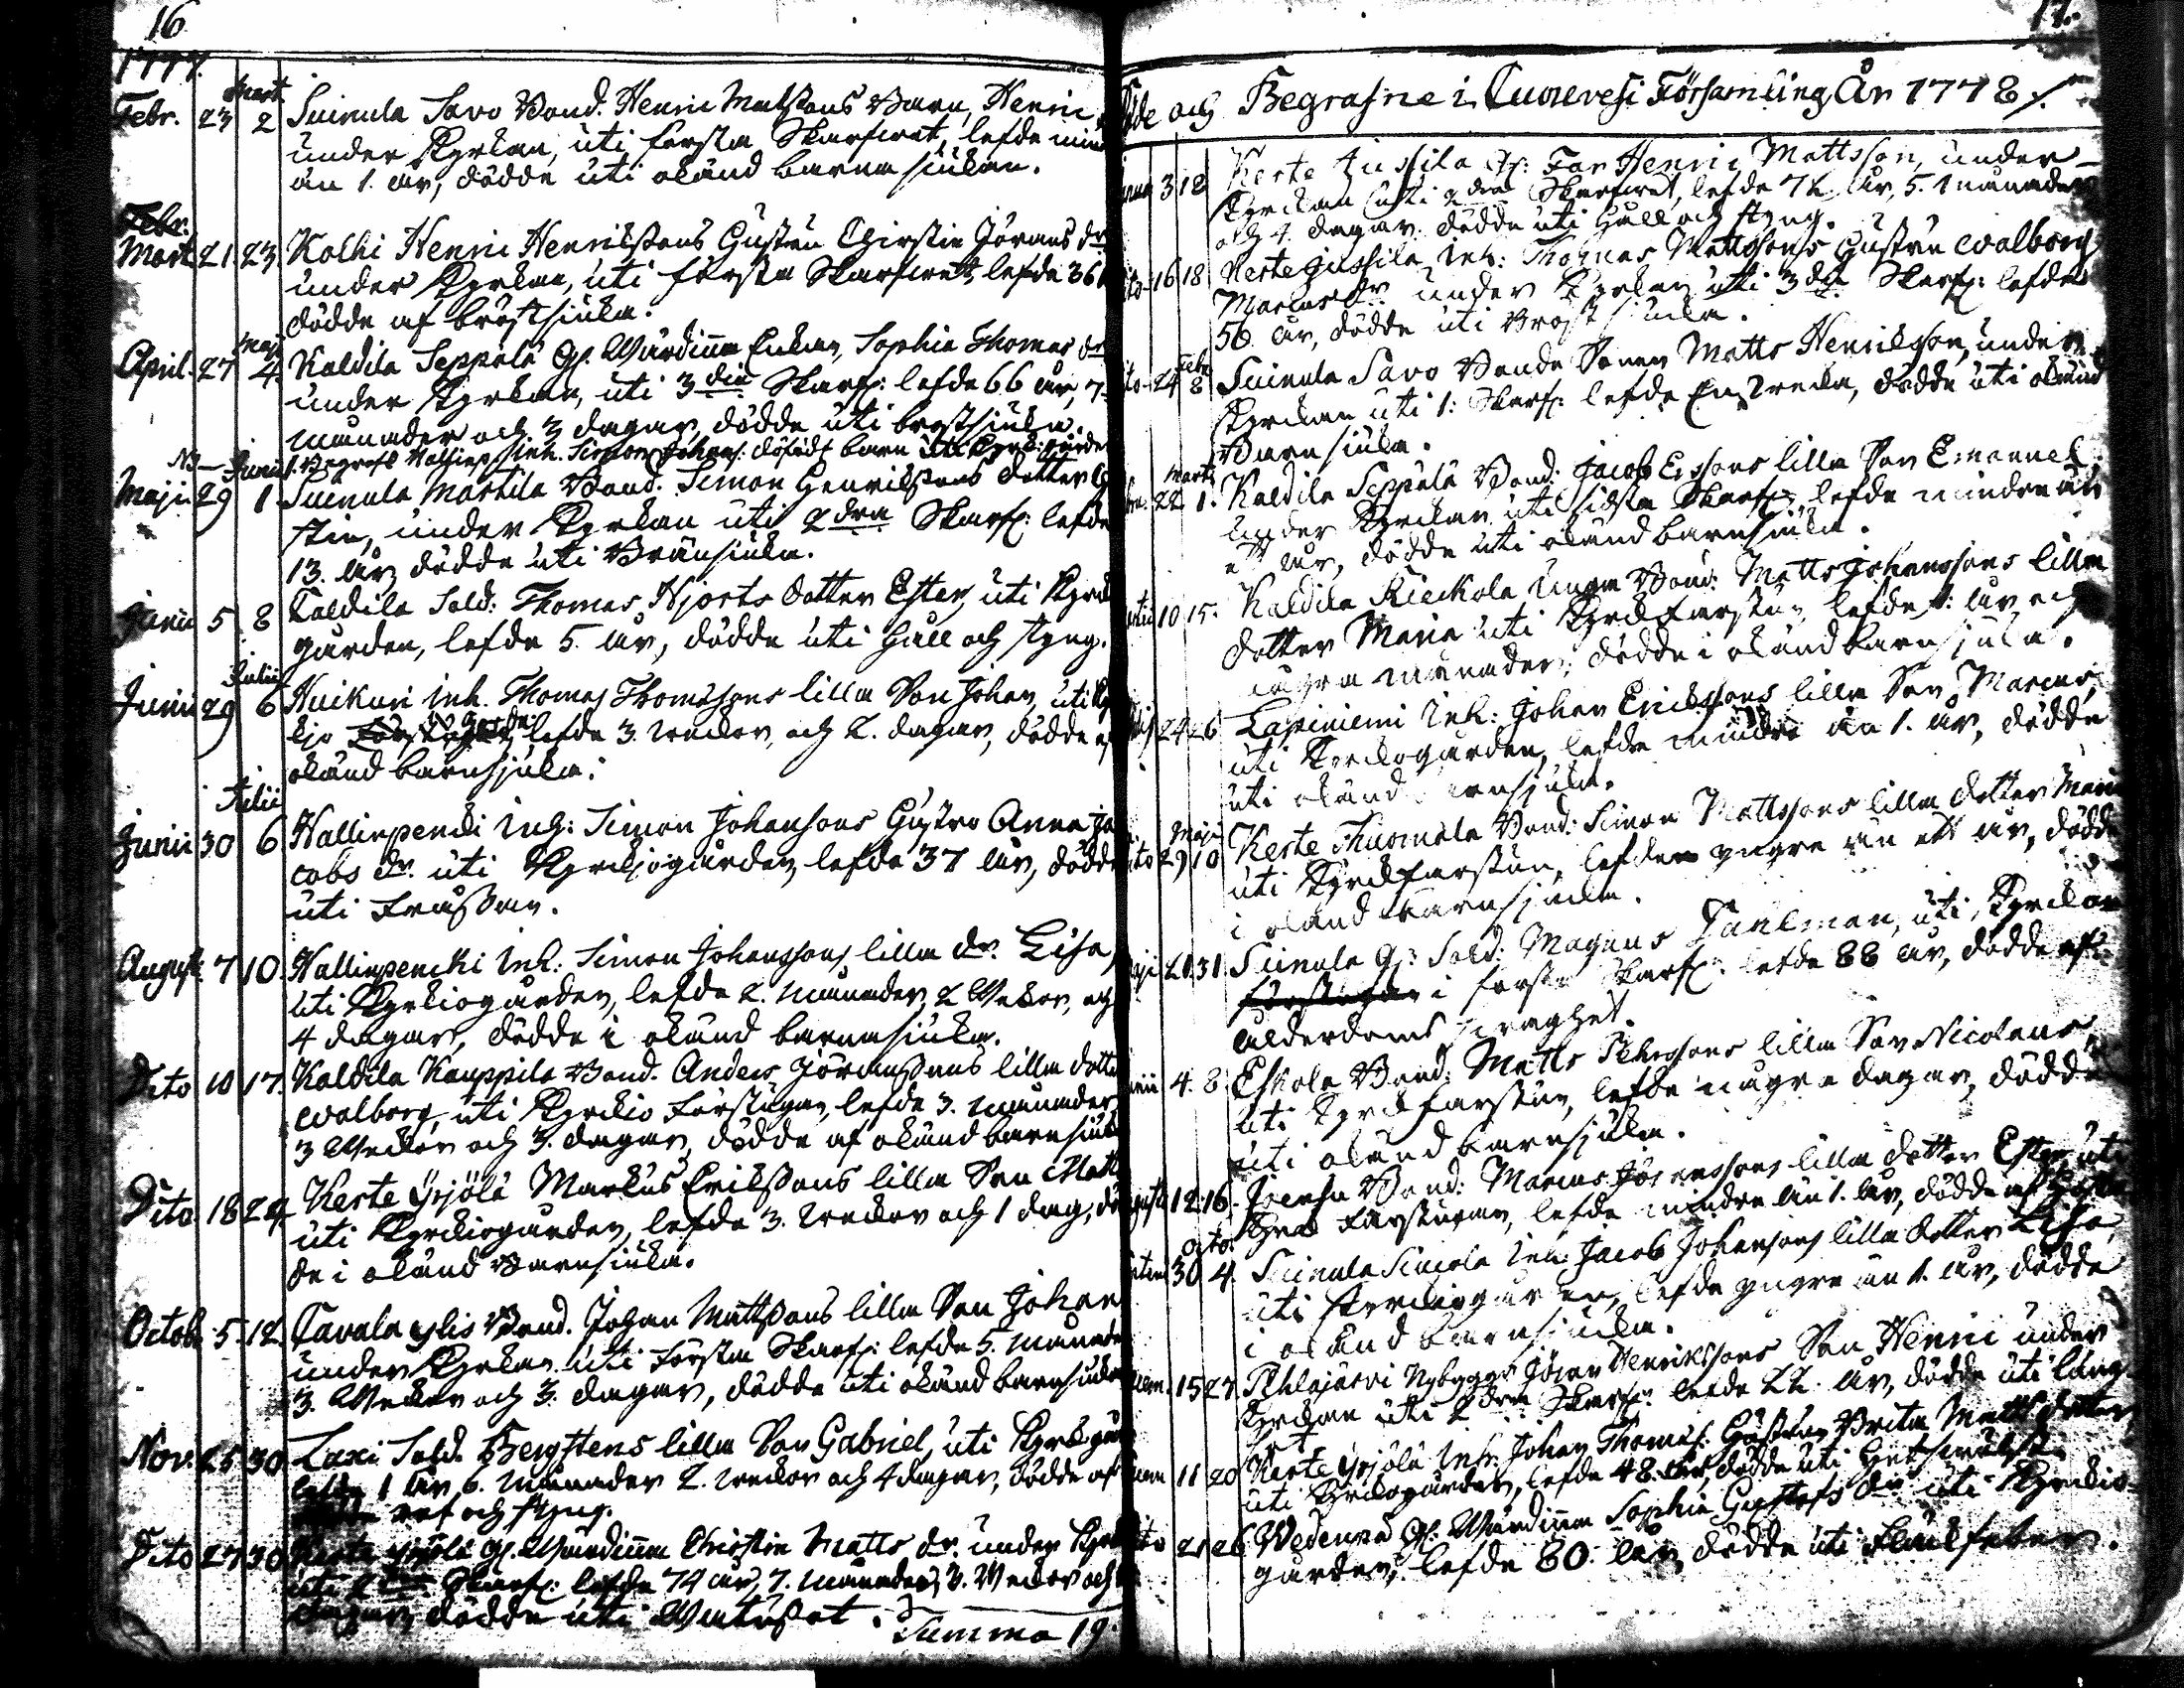 16
1777.
Febr. 23 Mart. 2 Suinula Savo Bond. Henric Mattssons Barn, Henric
under Kyrkan, uti första Skarfwet, lefde mind
än 1. år, dödde uti okänd barna siukan.
Febr.
Mart. 21 23 Kolhi Henric Henrikssons Gustru Christin Jörans dr
under Kyrkan, uti första Skarfwet, lefde 36
dödde af bröstsiuka.
April. 27 Maj 4. Kaldila Seppälä Gl. Wärdinna Enkan, Sophia Thomas dr
under Kyrkan, uti 3die Skarf: lefde 66 år, 7.
månader och 3 dagar, dödde uti bröstsiuka.
NB Junii 1. Begrofs Inh. Simon Johans: dödfödt barn uti Kyrk:gården
Maji 29 1 Suinula Martila Bond. Simon Henrikssons dotter
stin, under Kyrkan uti 2dra Skarf: lefde
13. år, dödde uti Bränsiuka.
Junii 5 8 Kaldila Sold: Thomas Hjorts dotter Ester, uti Kyrk
gården, lefde 5. år, dödde uti Håll och styng.
Junii 29 Julii 6 Huikuri Inh. Thomas Thomassons lilla Son Johan, uti Ky
kjo gården, lefde 3. weckor, och 2. dagar, dödde af
okänd barnsjuka.
Junii 30 Julii 6 Hallinpenki Inh: Simon Johansons Hustru Anna Ja
cobs dr. uti Kyrkjogården, lefde 37 år, dödde
uti Frossan.
August. 7 10. Hallinpencki Inh: Simon Johanssons lilla dr. Lisa,
uti Kyrkiogården, lefde 2. månader, 2 Wekor, och
4 dagar, dödde i okänd barnasiuka.
Dito 10 17. Kaldila Kauppila Bond. Anders Jöranssons lilla dotte
Walborg, uti Kyrkio Förstugan, lefde 3. månader
3 Weckor och 3. dagar, dödde af okänd barnsiuka
Dito 18 24. Kerte Yrjölä Markus Erikssons lilla Son Matt
uti Kyrkiogården, lefde 3. weckor och 1 dag, död
de i okänd Barnsiuka.
Octob. 5. 12. Tavala Ylis Bond. Johan Mattssons lilla Son Johan
under Kyrkan uti Första Skarf: lefde 5. månade
3. Weckor och 3. dagar, dödde uti okänd barnsiuka
Nov. 25 30 Laxi Sold. Bergstens lilla Son Gabriel, uti Kyrkgår
lefde 1 år, 6. månader 2. weckor och 4 dagar, dödde af
ref och styng.
Dito 27 30 Kerte Yrjölä Gl. Wärdinna Christin Matts dr. under Kyrk
uti 2dra Skarf: lefde 74 år, 7. månader, 3. Weckor och
dagar, dödde uti
Summa 19.
17.
Döde och Begrafne i Församling År 1778.
3 18 Kerte Jussila Gl: Far Henric Mattsson, under
Kyrckan uti 2dra Skarfwet, lefde 72 år, 5. månader
och 4. dagar. dödde uti Håll och styng.
ito 16 18 Kerte Jussila Inh: Thomas Mattssons Hustru Walborg
Marcus dr under Kyrkan uti 3die Skarf: lefde
56. år, dödde uti Bröstsiuka.
ito 24 Febr 8 Suinula Savo Bonde Sonen Matts Henriksson, under
Kyrckan uti 1: Skarf: lefde En wecka, dödde uti okänd
Barnsiuka.
22 Mart. 1. Kaldila Seppälä Bond: Jacob Erssons lilla Son Emanuel
under Kyrckan uti sidsta Skarf: lefde mindre än
ett år, dödde uti okänd barnsiuka.
10 15. Kaldila Rieckola Unga Bond: Matts Johanssons lilla
dotter Maria uti Kyrckfarstun, lefde 1: år och
några månader, dödde i okänd barnsjuka.
24 26 Lapiniemi Inh: Johan Erickssons lilla Son Marcus,
uti Kyrckogården, lefde mindre än 1. år, dödde
uti okänd barnsjuka.
ito 29 Maji 10 Kerte Tuomala Bond: Simon Mattssons lilla dotter Maria
uti Kyrckfarstun, lefde yngre än ett år, dödde
i okänd barnsjuka.
aji 21 31 Suinula Gl: Sold: Magnus Paulman, uti Kyrckan
i första Skarf: lefde 88 år, dödde af
ålderdoms swaghet.
nii 4. 8 Eskola Bond: Matts Pehrssons lilla Son Nicolaus,
uti Kyrckfarstun, lefde några dagar, dödde
uti okänd barnsjuka.
gusti 12. 16. Bond: Marcus Jöranssons lilla dotter Ester uti
Kyrck Farstugan, lefde mindre än 1. år, dödde af
30 Octo. 4. Suinula Inh: Jacob Johanssons lilla dotter Lisa,
uti Kyrckiogården, lefde yngre än 1. år, dödde
i okänd barnsjuka.
15 27 Pihlajärvi Nybygg. Jöran Henrikssons Son Henric under
Kyrckan uti 2dra Skarf: lefde 22. år, dödde uti lung
sot.
11 20 Kerte Yrjölä Inh: Johan Thomas: Hustru Brita Matts dotter
uti Kyrckogården, lefde 48. år, dödde uti
ito 21 26 Wedenpä Gl. Wärdinna Sophia Gustafs dr uti Kyrckio
gården, lefde 80. år, dödde uti Fläckfeber.